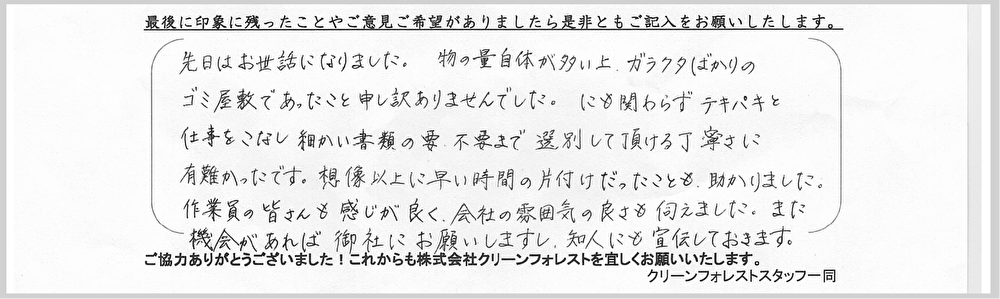 最後に印象に残ったことやご意見ご希望がありましたら是非ともご記入をお願いしたします。
先日はお世話になりました。 物の量自体が多い上、ガラクタばかりの
ゴミ屋敷であったこと申し訳ありませんでした。にも関わらずテキパキと
仕事をこなし細かい書類の要、不要まで選別して頂ける丁寧さに
有難かったです。想像以上に早い時間の片付けだったことも、助かりました。
作業員の皆さんも感じが良く、会社の雰囲気の良さも伺えました。また
機会があれば御社にお願いしますし、知人にも宣伝しておきます。
ご協力ありがとうございました！これからも株式会社クリーンフォレストを宜しくお願いいたします。
クリーンフォレストスタッフ一同